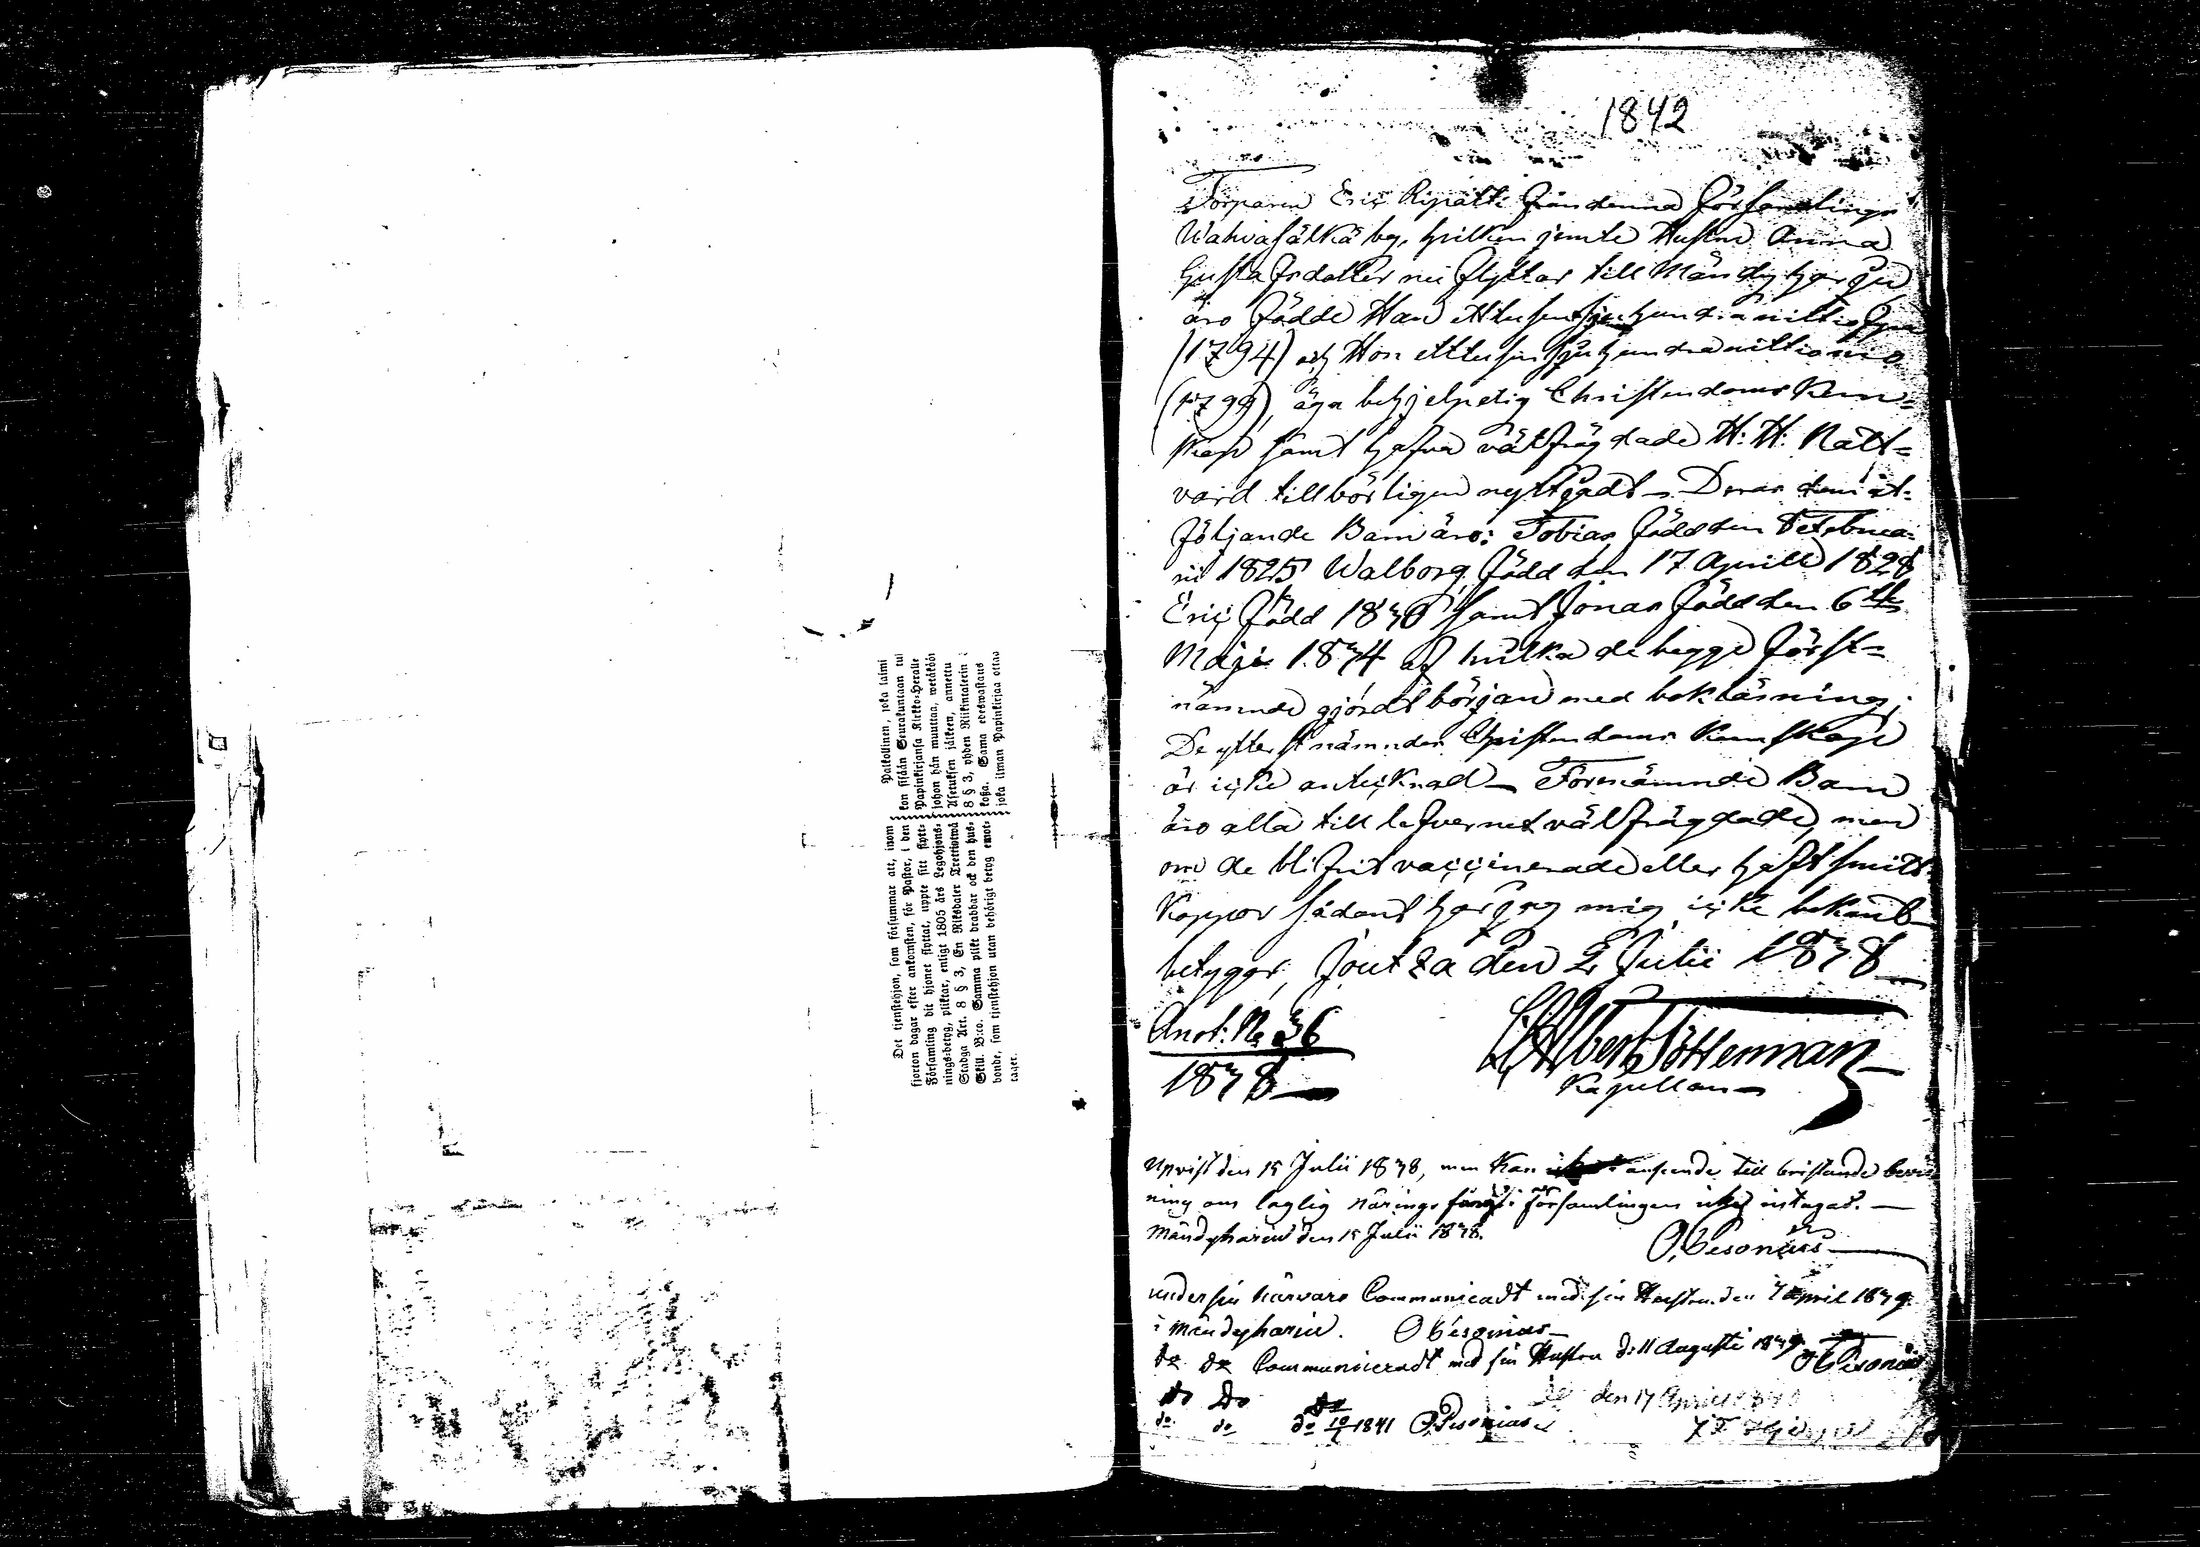 Det tjenstehjon, som försummar att, inom
fjorton dagar efter ankomsten, för Pastor, i den
Församling dit hjonet flyttat, uppte sitt flytt-
nings-betyg, pliktar, enligt 1805 års Legohjons-
Stadga Art. 8 § 3, En Riksdaler Trettiotwå
Skill. B:co. Samma plikt drabbar ock den hus-
bonde, som tjenstehjon utan behörigt betyg emot-
tager.
Palkollinen, joka laimi
kon sisään Seurakuntaan tul
Papinkirjansa Kirkko-Heralle
johon hän muuttaa, wetäköön
Asetuksen jälkeen, annettu
8 § 3, yhden Riikintalerin
koßa. Sama edeswastaus
joka ilman Papinkirjaa ottaa
1842
Torparen Eric Ripatti från denna Församlings
Wahvasälkä by, hvilken jemte Hustru Anna
Gustafsdotter nu flyttar till Mändyharju
äro födde Han ettusensjuhundranittiofyra
(1794) och Hon ettusensjuhundranittionio
(1799), äga behjelpelig Christendoms Kun-
skap samt hafva välfrägdade H: H: Natt-
vard tillbörligen nyttjadt – Deras dem åt-
följande Barn äro: Tobias född den 8 Februa-
rii 1825 Walborg född den 17 Aprill 1828
Eric född 1830 samt Jonas född den 6te
Maji 1834 af hvilka de begge först-
nämnde gjordt början med bokläsning;
De ytterst nämndes Christendoms Kunskap
är icke antecknad – Förenämnde Barn
äro alla till lefvernet välfrägdade, men
om de blifvit vaccinerade eller haft smitt-
koppor sådant har jag mig icke bekant
betygar, Joutza den 2 Julii 1838
Anot: No 36
1838
Albert Töttenman
Kapellan
Upvist den 15 Julii 1838, men kan i anseende till bristande bevis
ning om laglig närings fång i församlingen icke intagas.
Mändyharju den 15 Julii 1838.
O. Pesonius
under sin härvaro Communicadt med sin Hustru den 7 April 1839
i Mändyharju. O Pesonius
do do Communiceradt med sin Hustru d: 11 Augusti 1839 O Pesonius
do Do do den 17 April 1840
do do do 1841 O. Pesonius